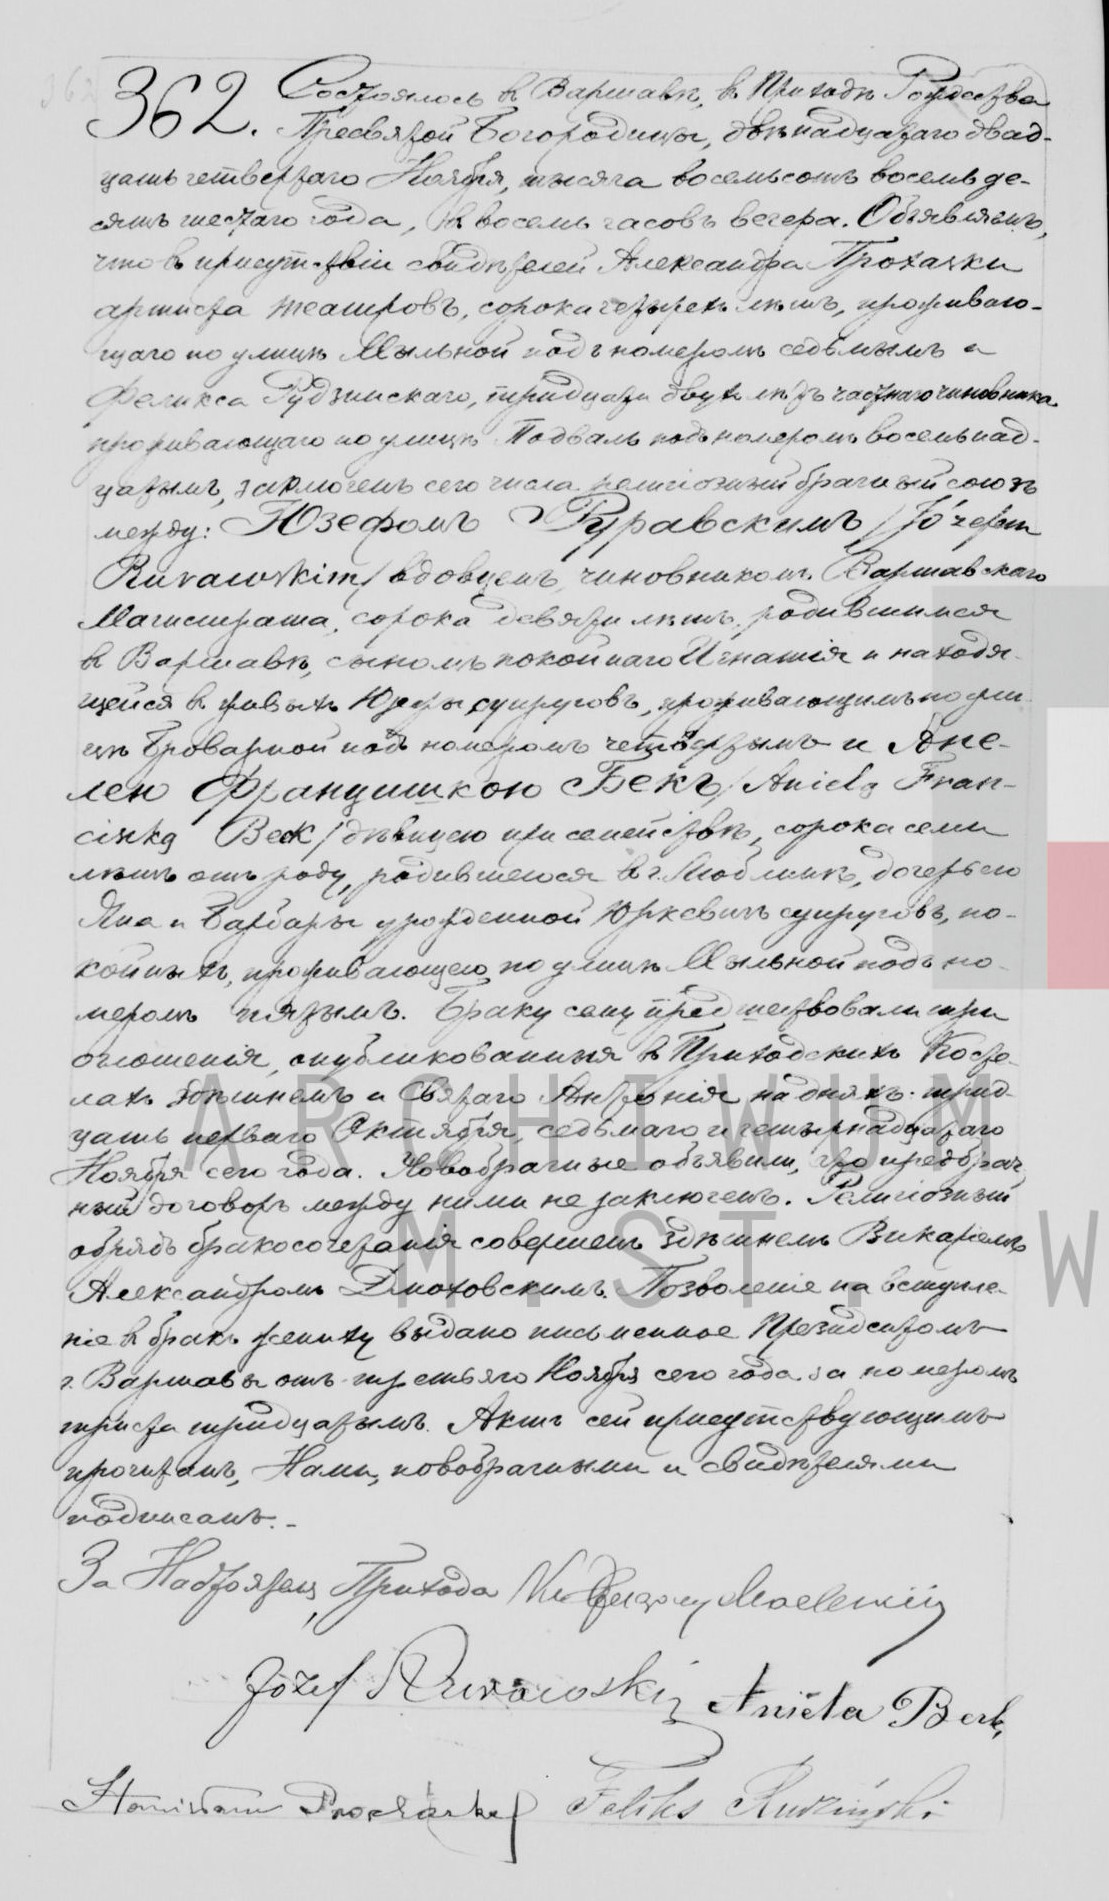 362. Состоялось въ Варшавѣ, въ Приходѣ Рождества
Пресвятой Богородицы, двѣнадцатаго двад-
цать четвертаго Ноября, тысяча восемьсотъ восемьде-
сятъ шестаго года, въ восемь часовъ вечера. Объявляемъ,
что въ присутствіи свидѣтелей Александра Прохазки
артиста театровъ, сорока четырехъ лѣтъ, прожива-
ющаго по улицѣ Мыльной подъ номеромъ седьмымъ и
Феликса Рудзинскаго, тридцати двухъ лѣтъ частнаго чиновника
проживающаго по улицѣ Подваль подъ номеромъ восемьнад-
цатымъ, заключенъ сего числа религіозный брачный союзъ
между: Юзефомъ Руравскимъ /Józefem
Rurawskim/ вдовцемъ, чиновникомъ Варшавскаго
Магистрата, сорока девяти лѣтъ, родившимся
въ Варшавѣ, сыномъ покойнаго Игнатія и находя-
щейся въ живыхъ Юзефы супруговъ, проживающимъ по ули-
цѣ Броварной подъ номеромъ четвертымъ и Ане-
лею Францишкою Бекъ /Anielą Fran-
ciszką Bek/ дѣвицею при семействѣ, сорока семи
лѣтъ отъ роду, родившеюся въ г. Люблинѣ, дочерью
Яна и Барбары урожденной Юркевичъ супруговъ, по-
койныхъ, проживающею по улицѣ Мыльной подъ но-
меромъ пятымъ. Браку сему предшествовали три
оглошенія, опубликованныя въ Приходскихъ Косте-
лахъ здѣшнемъ и Святаго Антонія на дняхъ: трид-
цать перваго Октября, седьмаго и четырнадцатаго
Ноября сего года. Новобрачные объявили, что предбрач-
ный договоръ между ними не заключенъ. Религіозный
обрядъ бракосочетанія совершенъ здѣшнемъ Викаріемъ
Александромъ Дмоховскимъ. Позволеніе на вступле-
ніе въ бракъ жениху выдано письменное Президентомъ
г. Варшавы отъ третьяго Ноября сего года за номеромъ
триста тридцатымъ. Актъ сей присутствующимъ
прочитанъ, Нами, новобрачными и свидѣтелями
подписанъ.-
За Настоятеля Прихода
Józef Rurawski Aniela Bek
Prochazka Feliks Rudziński
ARCHIWUM
M. ST W